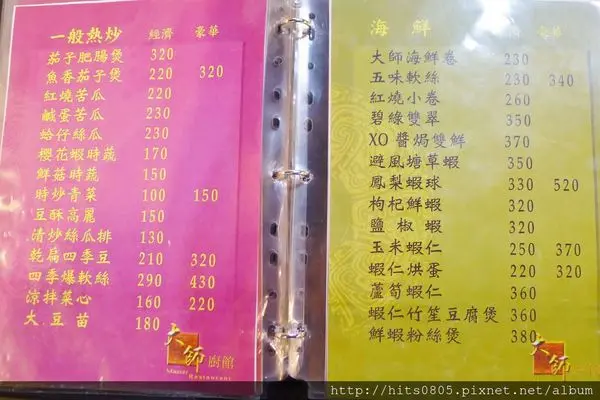 一般熱炒 經濟 豪華
茄子肥腸煲 320
魚香茄子煲 220 320
紅燒苦瓜 220
鹹蛋苦瓜 230
蛤仔絲瓜 230
櫻花蝦時蔬 170
鮮菇時蔬 150
時炒青菜 100 150
豆酥高麗 150
清炒絲瓜排 130
乾扁四季豆 210 320
四季爆軟絲 290 430
涼拌菜心 160 220
大豆苗 180
大師廚館
Master Restaurant
海鮮 經濟 豪華
大師海鮮卷 230
五味軟絲 230 340
紅燒小卷 260
碧綠雙翠 350
XO醬焗雙鮮 370
避風塘草蝦 350
鳳梨蝦球 330 520
枸杞鮮蝦 320
鹽椒蝦 320
玉米蝦仁 250 370
蝦仁烘蛋 220 320
蘆筍蝦仁 360
蝦仁竹笙豆腐煲 360
鮮蝦粉絲煲 380
大師
http://hits0805.pixnet.net/album